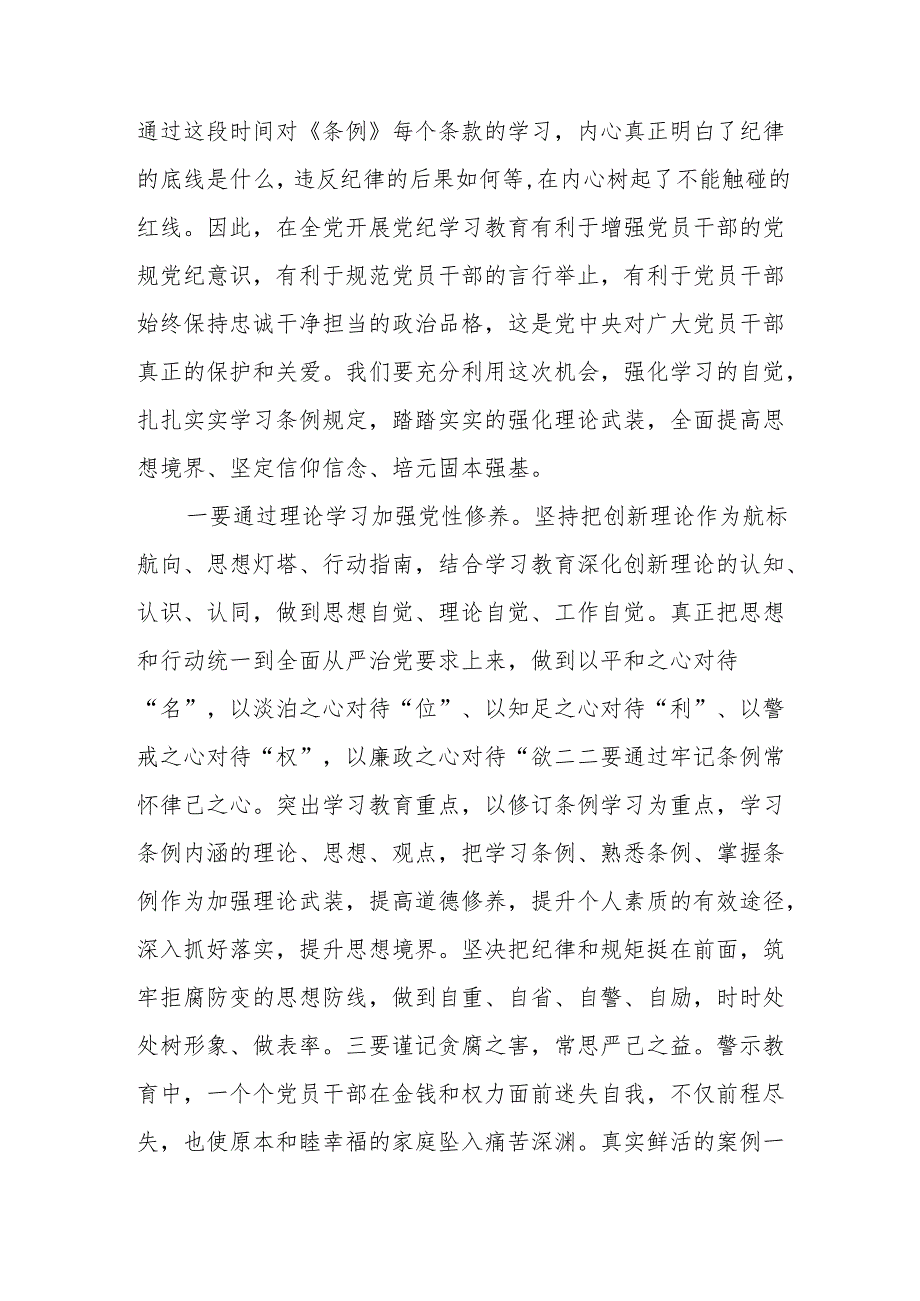 通过这段时间对《条例》每个条款的学习，内心真正明白了纪律
的底线是什么，违反纪律的后果如何等,在内心树起了不能触碰的
红线。因此，在全党开展党纪学习教育有利于增强党员干部的党
规党纪意识，有利于规范党员干部的言行举止，有利于党员干部
始终保持忠诚干净担当的政治品格，这是党中央对广大党员干部
真正的保护和关爱。我们要充分利用这次机会，强化学习的自觉，
扎扎实实学习条例规定，踏踏实实的强化理论武装，全面提高思
想境界、坚定信仰信念、培元固本强基。
一要通过理论学习加强党性修养。坚持把创新理论作为航标
航向、思想灯塔、行动指南，结合学习教育深化创新理论的认知、
认识、认同，做到思想自觉、理论自觉、工作自觉。真正把思想
和行动统一到全面从严治党要求上来，做到以平和之心对待
“名”，以淡泊之心对待“位”、以知足之心对待“利”、以警
戒之心对待“权”，以廉政之心对待“欲二二要通过牢记条例常
怀律己之心。突出学习教育重点，以修订条例学习为重点，学习
条例内涵的理论、思想、观点，把学习条例、熟悉条例、掌握条
例作为加强理论武装，提高道德修养，提升个人素质的有效途径，
深入抓好落实，提升思想境界。坚决把纪律和规矩挺在前面，筑
牢拒腐防变的思想防线，做到自重、自省、自警、自励，时时处
处树形象、做表率。三要谨记贪腐之害，常思严己之益。警示教
育中，一个个党员干部在金钱和权力面前迷失自我，不仅前程尽
失，也使原本和睦幸福的家庭坠入痛苦深渊。真实鲜活的案例一